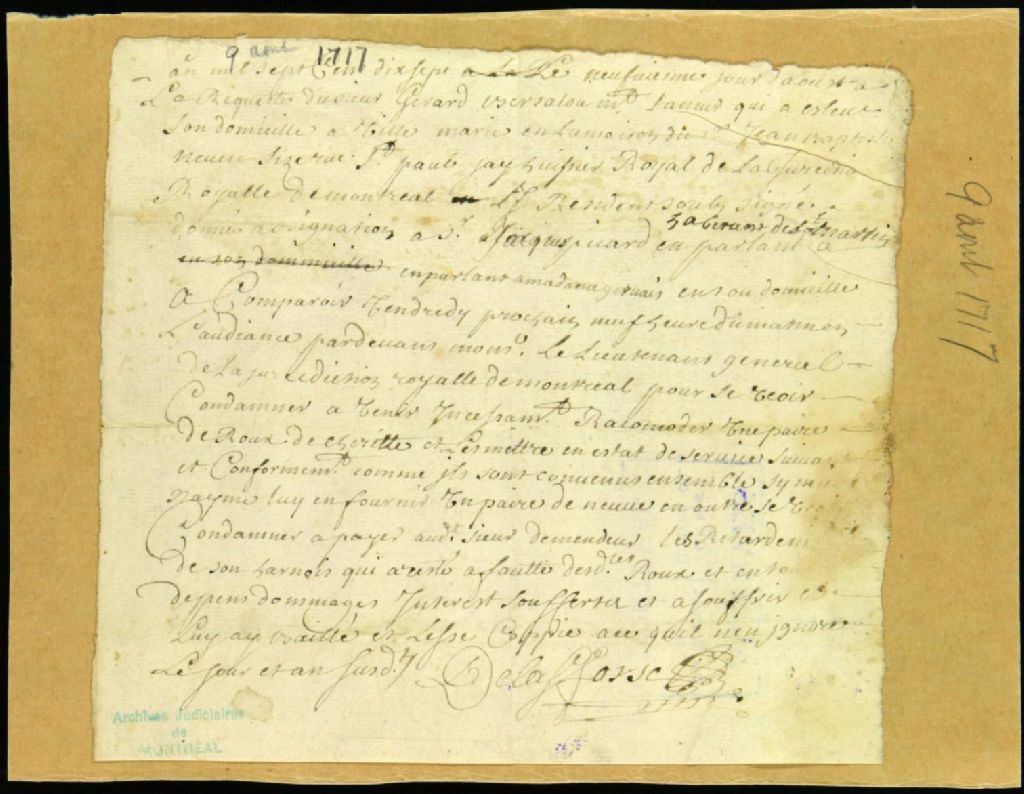 9 aout 1717
an mil sept Cent dix sept le neufuieme jour daoust a
La Requeste du sieur Gerard versalou md taneur qui a esleue
Son domicille a Ville marie en la maison du Sr Jean Baptiste
neueu Size rue St paul jay huissier Royal de La Jured
Royalle de montreal y Resident soubz signé
donné assignation a Sr Jacque picard habitant de St martin en parlant a
en son dommicille en parlant a madame geruais en sou domicille
A Comparoir Vendredy prochain neuf heure du matin en
L'audiance pardeuant monsr Le Lieutenant general
de La jurediction royalle de montreal pour se Veoir
Condamner a Venir Incessamt Racomoder Vne paire
de Roux de cherette et Les mettre en estat de seruice suiuant
et Conformemt comme jls sont conuenus ensemble sy
nayme luy en fournir Vn paire de neuue en outre se Veoir
Condamner a payer audt sieur demendeur les Retardem
de son harnois qui a resté a faulte desdttes Roux et en to
depens dommages Interest soufferter et a souffrir
Luy ay baillé et Lesse Coppie ace quil n'en jgnore
Le jour et an susdt
Delafosse
Archives Judiciaires
de
MONTREAL
9 aout 1717